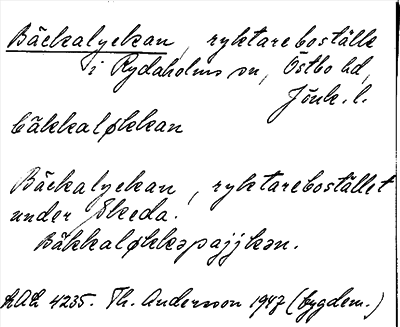 Bäckalyckan, ryktareboställe
i Rydaholms sn, Östbo hd,
Jönk. l.
bäkkaløkkan
Bäckalyckan, ryktarebostället
under Skeda.
Bäkkaløkkəpajjkən.
ULMA 4235. Th. Andersson 1947 (bygdem.)